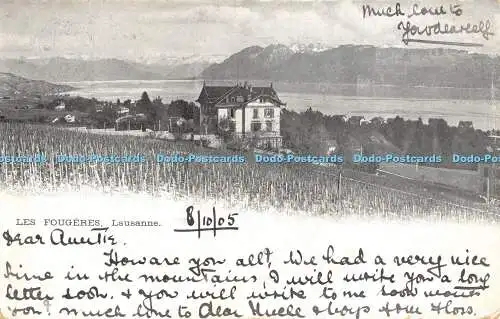 Much love to
Yourdearself
Dodo-Postcards Dodo-Postcards Dodo-Postcards Dodo-Postcards Dodo-Postcards
LES FOUGÈRES, Lausanne.
8/10/05
Dear Auntie.
How are you all? We had a very nice
time in the mountains, I will write you a long
letter soon, & you will write to me soon wont
you? much love to Dear Uncle & from